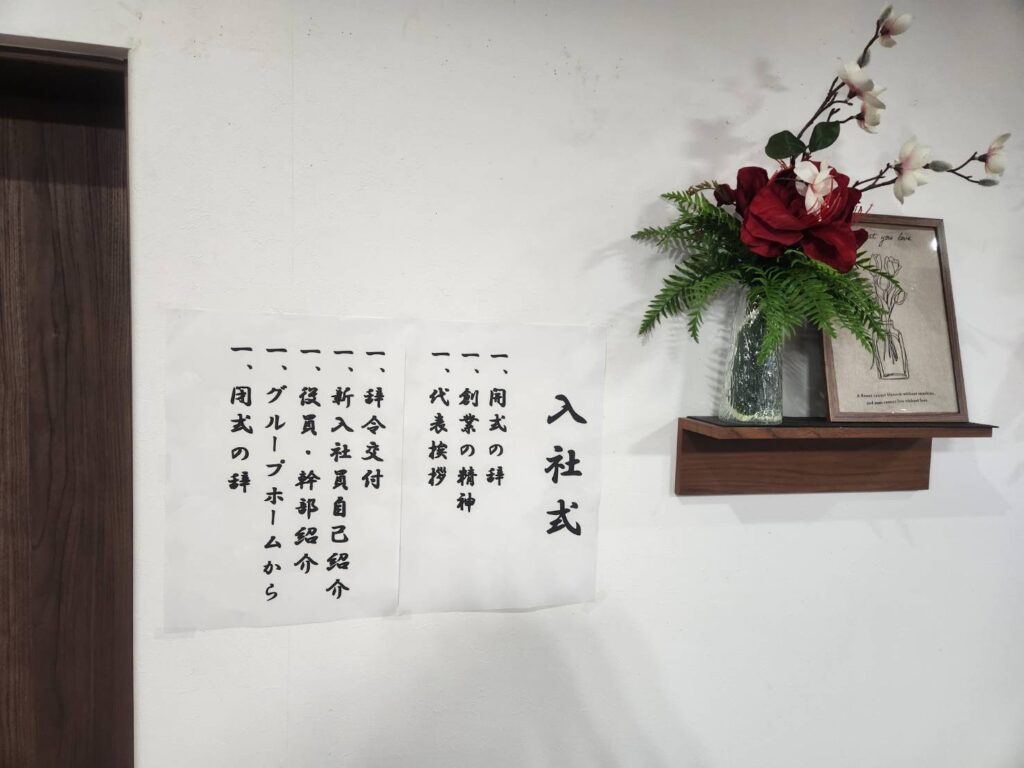 入社式
一、開式の辞
一、創業の精神
一、代表挨拶
一、辞令交付
一、新入社員自己紹介
一、役員・幹部紹介
一、グループホームから
一、閉式の辞
you love
A flower cannot blossom without sunshine,
and man cannot live without love.